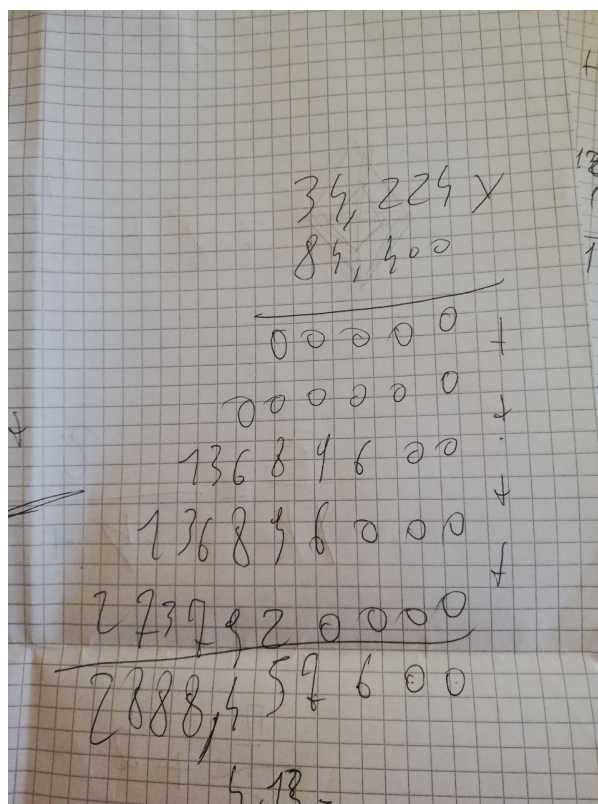 34,224 x
84,400
00000 +
000000 +
13689600 +
136896000 +
2737920000
2888,457600